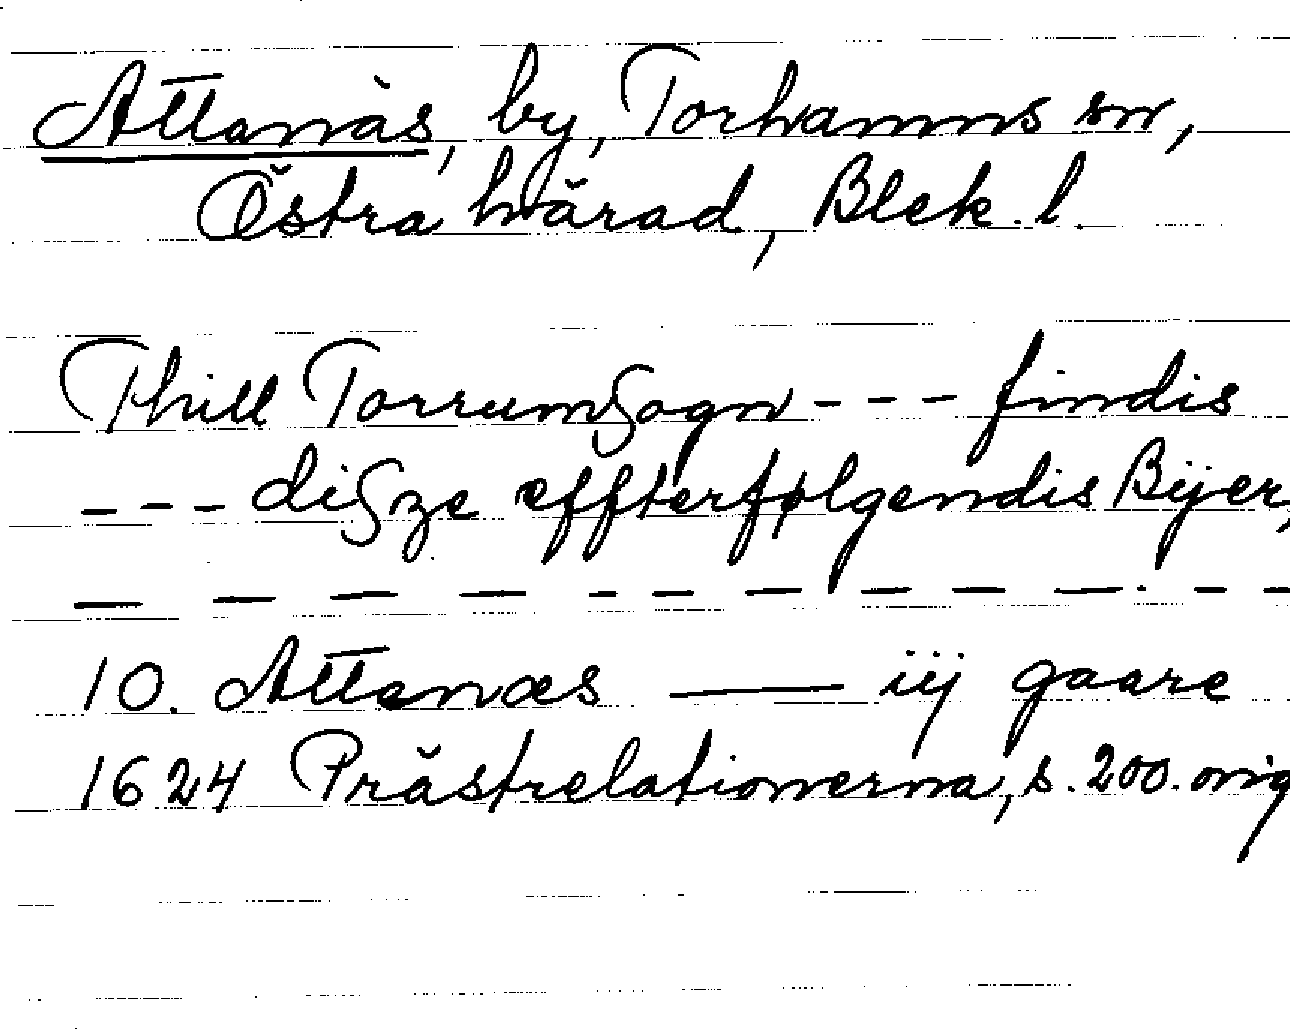 Attanäs, by, Torhamns sn,
Östra härad, Blek. l.
Thill Torrumßogn --- findis
--- dißze effterfølgendis Bijer,
— — — — — — — — — — — —
10. Attanæs — iij gaare
1624 Prästrelationerna, s. 200. orig